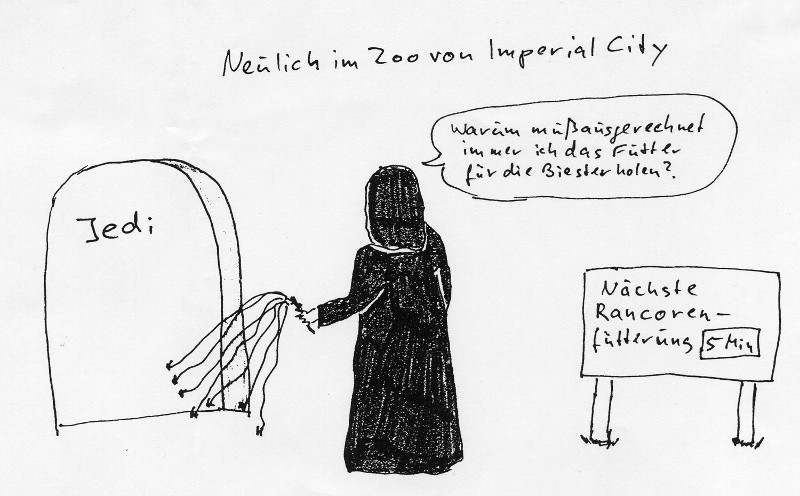 Neulich im Zoo von Imperial City
Warum muß ausgerechnet
immer ich das Futter
für die Biester holen?
Jedi
Nächste
Rancoren-
fütterung 5 Min